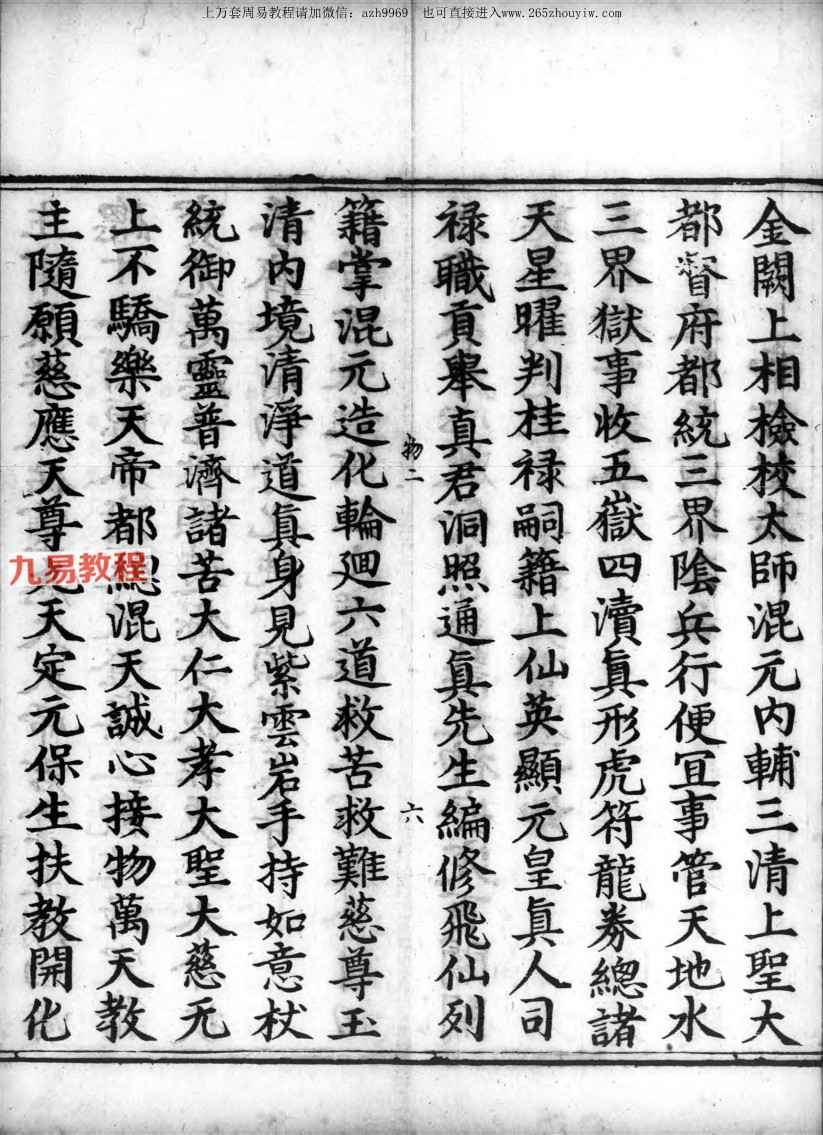 上万套周易教程请加微信：azh9969 也可直接进入www.265zhouyiw.com
金闕上相檢校太師混元內輔三清上聖大
都督府都統三界陰兵行便宜事管天地水
三界獄事收五嶽四瀆真形虎符龍券總諸
天星曜判桂祿嗣籍上仙英顯元皇眞人司
祿職貢舉真君洞照通眞先生編修飛仙列
物二
六
籍掌混元造化輪廻六道救苦救難慈尊玉
清內境清淨道眞身見紫雲岩手持如意杖
統御萬靈普濟諸苦大仁大孝大聖大慈无
上不驕樂天帝都總混天誠心接物萬天教
主隨願慈應天尊天定元保生扶教開化
九易教程